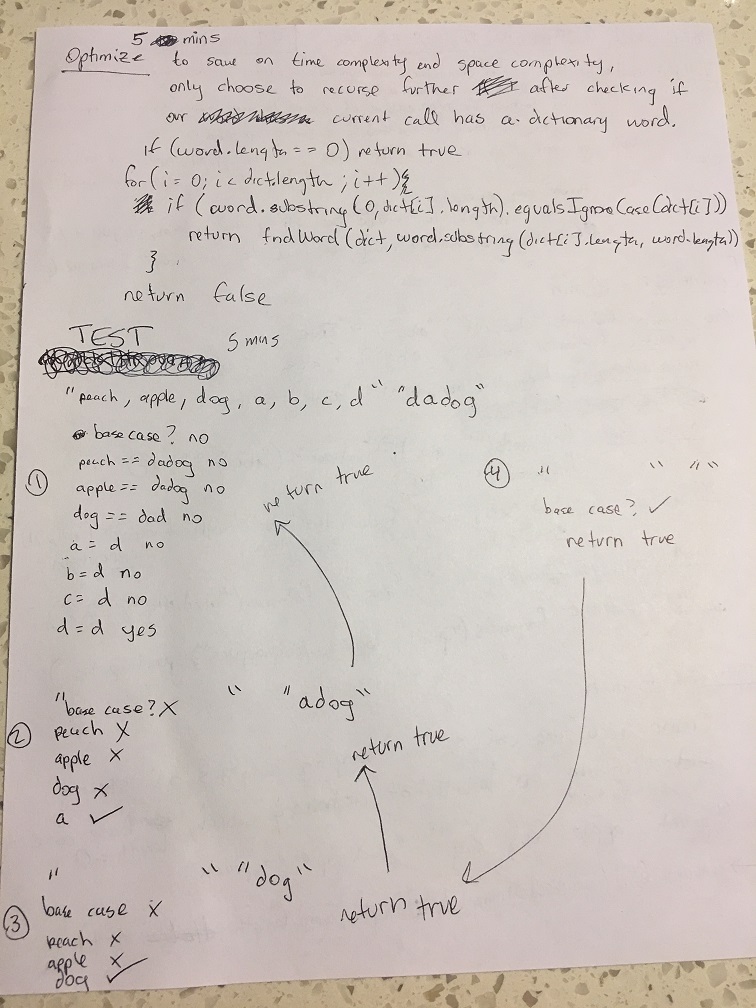 5 mins
Optimize to save on time complexity and space complexity,
only choose to recurse further after checking if
our current call has a dictionary word.
if (word.length == 0) return true
for(i = 0; i < dict.length ; i++){
if (word.substring(0,dict[i].length).equalsIgnoreCase(dict[i]))
return findWord(dict, word.substring(dict[i].length, word.length))
}
return false
TEST 5 mins
"peach, apple, dog, a, b, c, d" "dadog"
base case? no
peach == dadog no
① apple == dadog no
dog == dad no
a = d no
b = d no
c = d no
d = d yes
return true
④ " " ""
base case? ✓
return true
" " "adog"
base case? X
② peach X
apple X
dog X
a ✓
return true
" " "dog"
③ base case X
peach X
apple X
dog ✓
return true